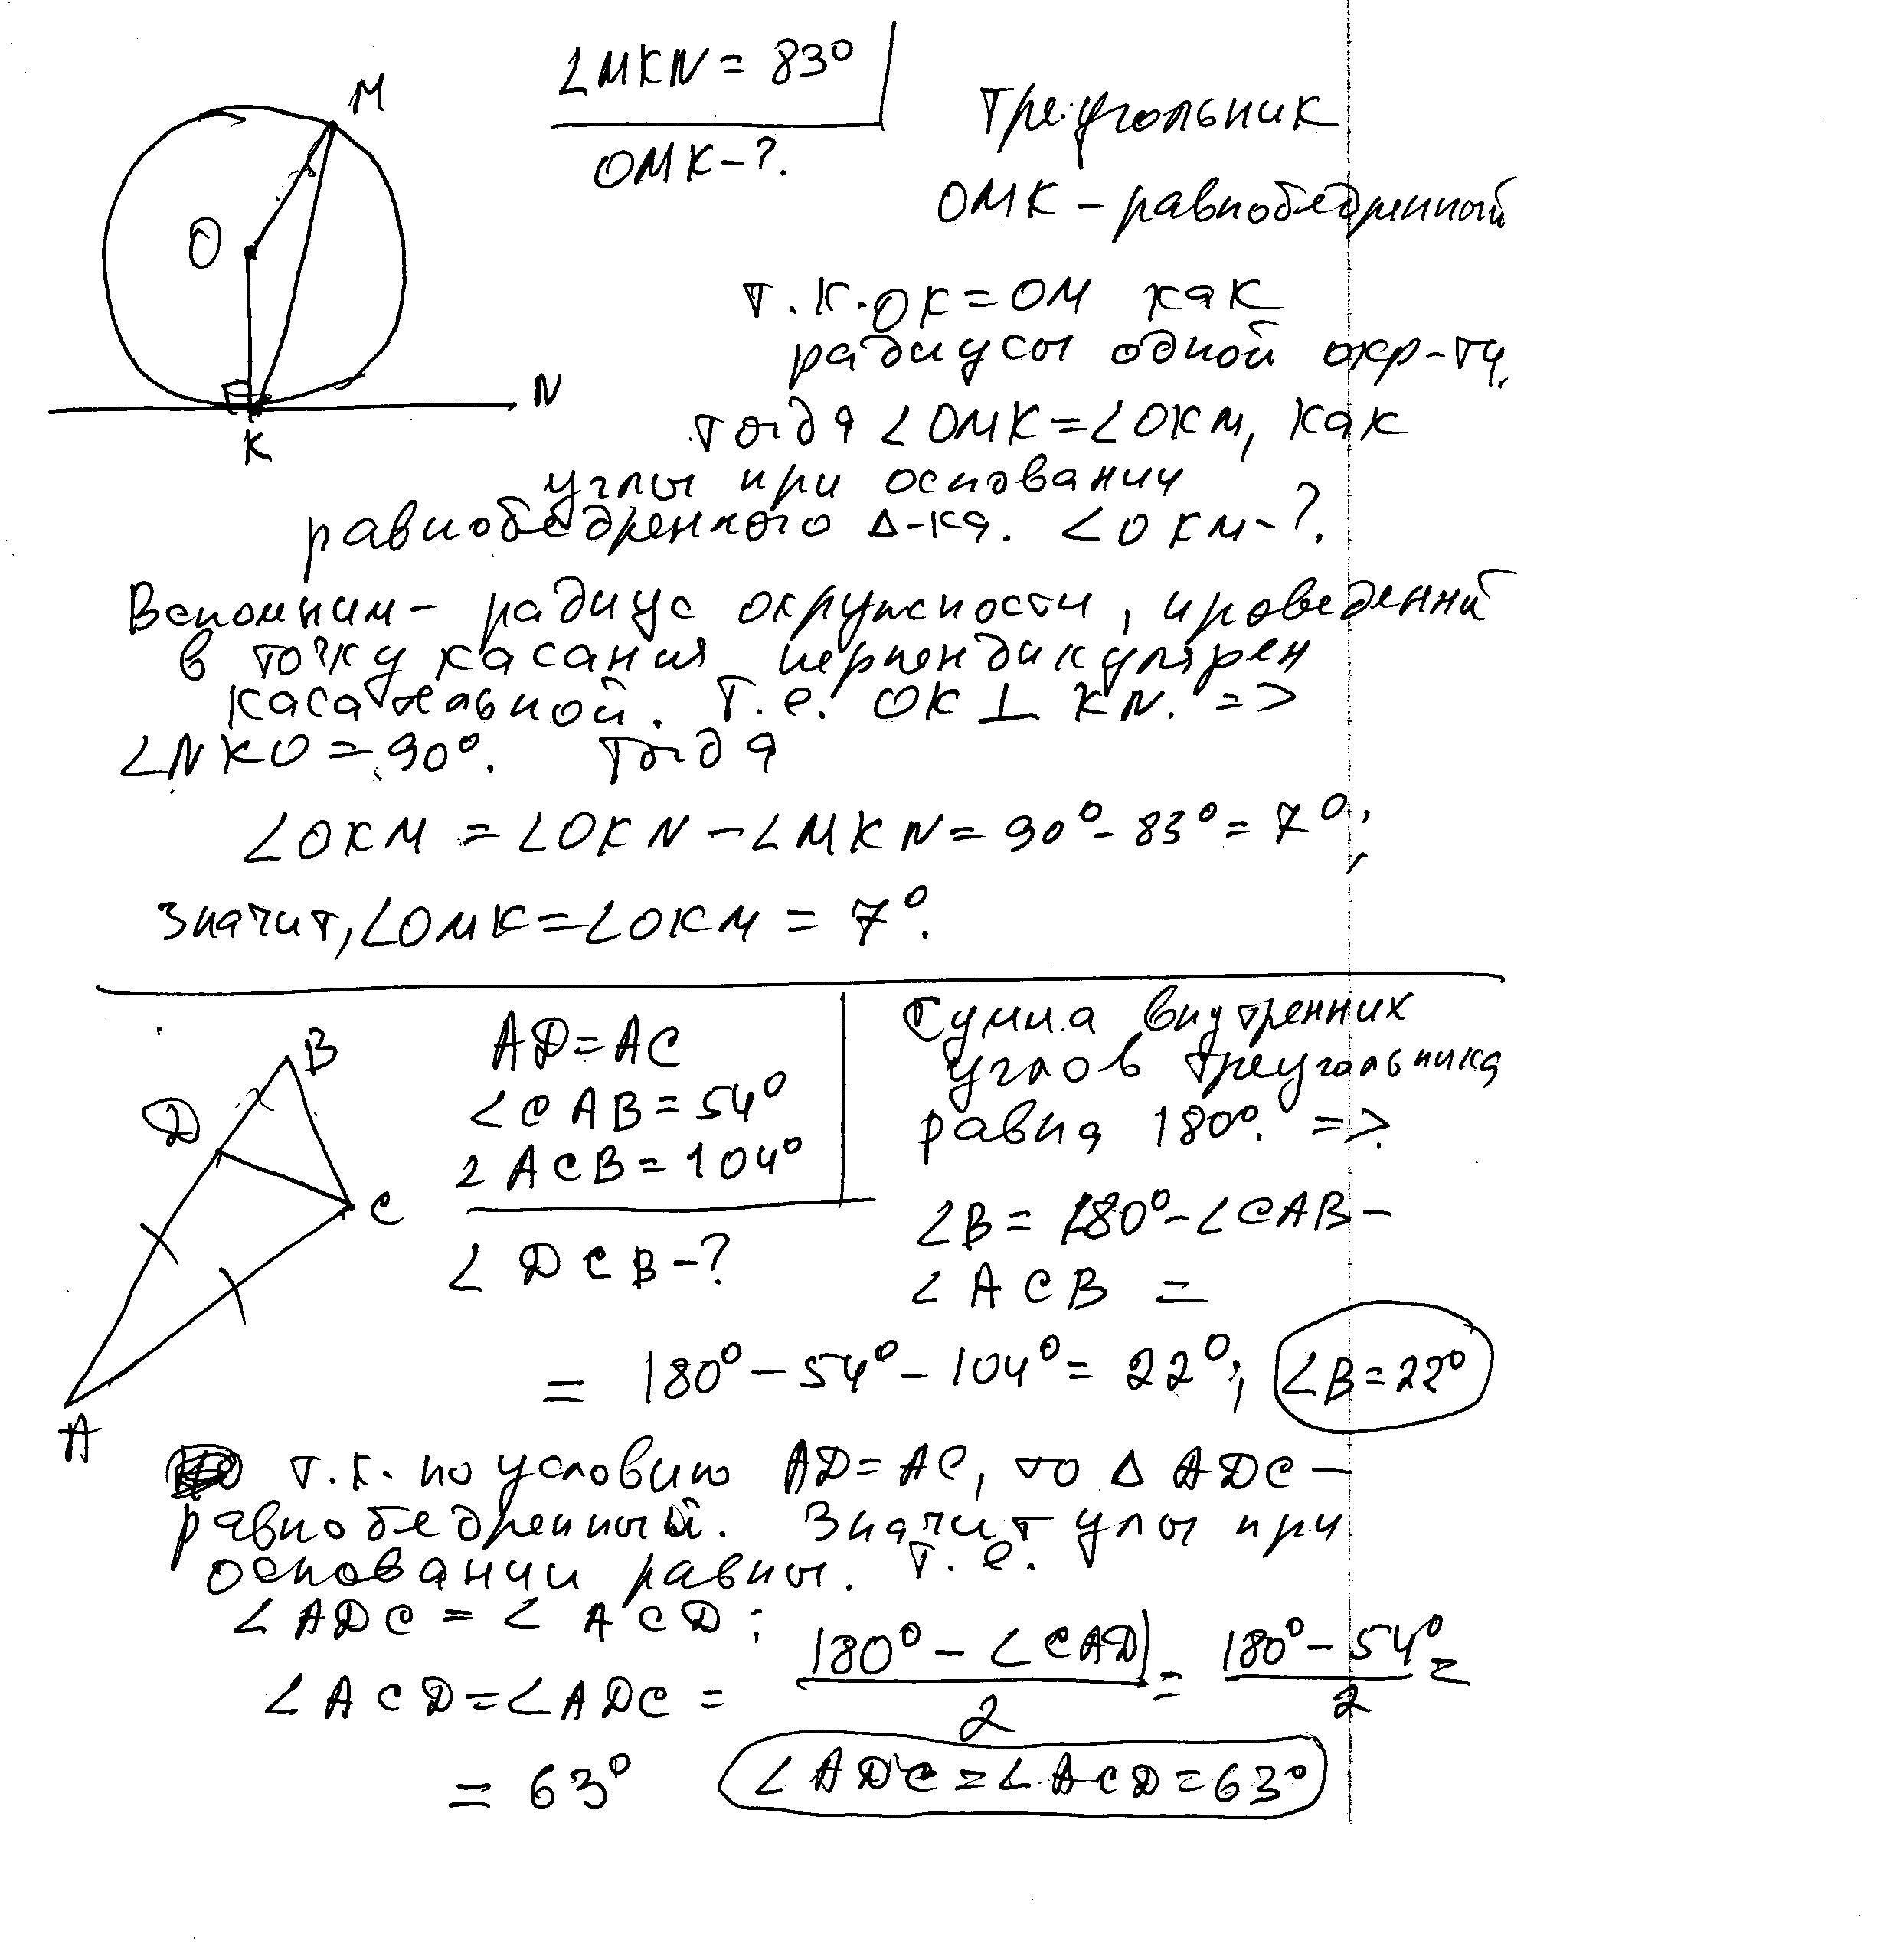 M
O
K
N
∠MKN = 83°
OMK - ?.
Треугольник
OMK – равнобедренный
т.к. OK = OM как
радиусы одной окр-ти.
тогда ∠OMK = ∠OKM, как
углы при основании
равнобедренного Δ-ка. ∠OKM - ?.
Вспомним – радиус окружности, проведенный
в точку касания перпендикулярен
касательной. Т.е. OK ⊥ KN. =>
∠NKO = 90°. Тогда
∠OKM = ∠OKN – ∠MKN = 90° - 83° = 7°;
Значит, ∠OMK = ∠OKM = 7°.
B
D
C
A
AD = AC
∠CAB = 54°
∠ACB = 104°
∠DCB - ?
Сумма внутренних
углов треугольника
равна 180°. =>.
∠B = 180° - ∠CAB –
∠ACB =
= 180° – 54° – 104° = 22°; ∠B = 22°
т.к. по условию AD = AC, то Δ ADC –
равнобедренный. Значит улы при
основании равны. Т.е.
∠ADC = ∠ACD;
∠ACD = ∠ADC = (180° – ∠CAD)/2 = (180° – 54°)/2 =
= 63° ∠ADC = ∠ACD = 63°